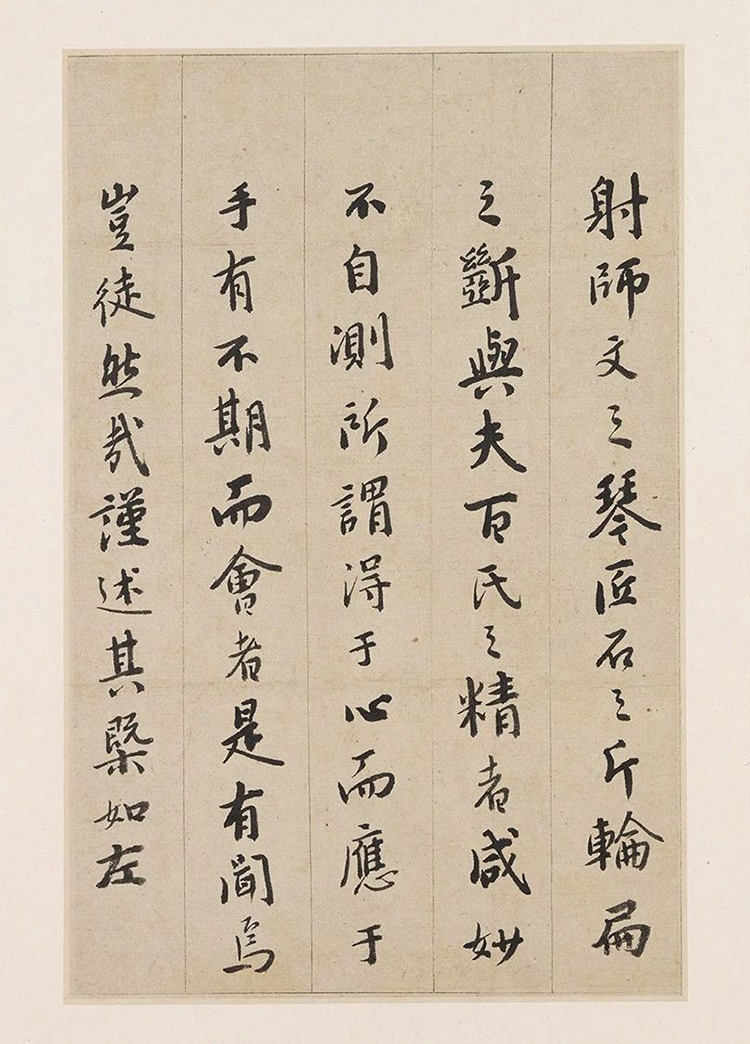 射師文之琴匠石之斤輪扁
之斲與夫百氏之精者咸妙
不自測所謂得于心而應于
手有不期而會者是有聞焉
豈徒然哉謹述其槩如左